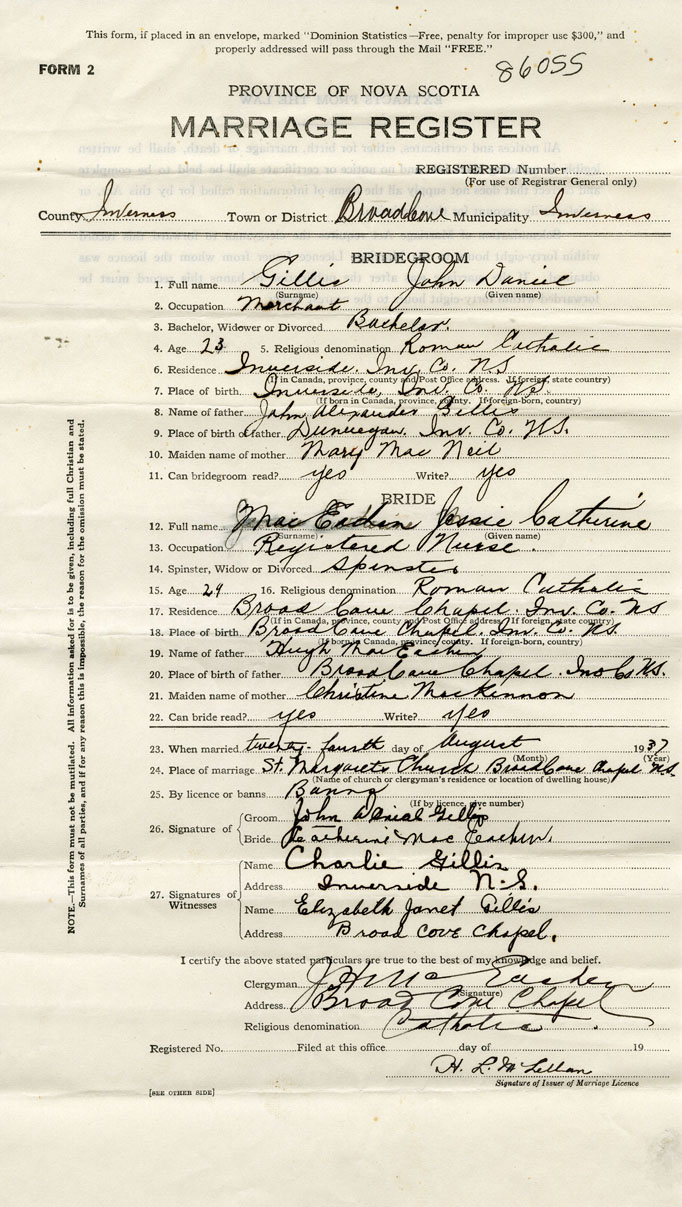 This form, if placed in an envelope, marked "Dominion Statistics—Free, penalty for improper use $300," and
properly addressed will pass through the Mail "FREE."
FORM 2
86055
PROVINCE OF NOVA SCOTIA
MARRIAGE REGISTER
REGISTERED Number
(For use of Registrar General only)
County Inverness Town or District Broad Cove Municipality Inverness
BRIDEGROOM
1. Full name Gillis John Daniel
(Surname) (Given name)
2. Occupation Merchant
3. Bachelor, Widower or Divorced Bachelor.
4. Age 23 5. Religious denomination Roman Catholic
6. Residence Inverside. Inv. Co. NS
(If in Canada, province, county and Post Office address. If foreign, state country)
7. Place of birth Inverside, Inv. Co. NS.
(If born in Canada, province, county. If foreign-born, country)
8. Name of father John Alexander Gillis
9. Place of birth of father Dunvegan. Inv. Co. NS.
10. Maiden name of mother Mary Mac Neil
11. Can bridegroom read? yes Write? yes
BRIDE
12. Full name Mac Eachen Jessie Catherine
(Surname) (Given name)
13. Occupation Registered Nurse.
14. Spinster, Widow or Divorced Spinster
15. Age 24 16. Religious denomination Roman Catholic
17. Residence Broad Cove Chapel. Inv. Co. NS
(If in Canada, province, county and Post Office address. If foreign, state country)
18. Place of birth Broad Cove Chapel. Inv. Co. NS.
(If born in Canada, province, county. If foreign-born, country)
19. Name of father Hugh MacEachen
20. Place of birth of father Broad Cove Chapel. Inv Co NS.
21. Maiden name of mother Christine MacKinnon
22. Can bride read? yes Write? yes
23. When married twenty-fourth day of August 1937
(Month) (Year)
24. Place of marriage St. Margarets Church Broad Cove Chapel N.S.
(Name of church or clergyman's residence or location of dwelling house)
25. By licence or banns Banns
(If by licence, give number)
26. Signature of Groom John Danial Gillis
Bride Catherine Mac Eachen.
27. Signatures of Witnesses
Name Charlie Gillis
Address Inverside N.S.
Name Elizabeth Janet Gillis
Address Broad Cove Chapel.
I certify the above stated particulars are true to the best of my knowledge and belief.
Clergyman J H Mc Eachen
(Signature)
Address Broad Cove Chapel
Religious denomination Catholic.
Registered No. Filed at this office day of 19
H. L. McLellan
Signature of Issuer of Marriage Licence
[SEE OTHER SIDE]
NOTE.—This form must not be mutilated. All information asked for is to be given, including full Christian and
Surnames of all parties, and if for any reason this is impossible, the reason for the omission must be stated.